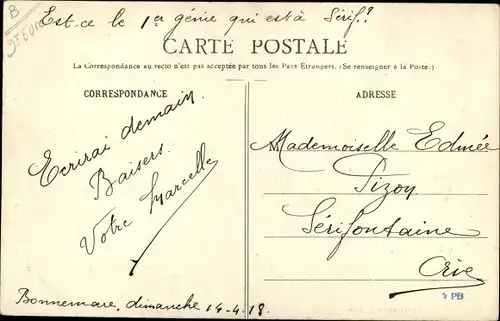 B
Est-ce le 1er génie qui est à Sérif??
CARTE POSTALE
La Correspondance au recto n'est pas acceptée par tous les Pays Etrangers. (Se renseigner à la Poste.)
CORRESPONDANCE
Ecrirai demain
Baisers
Votre Marcelle
Bonnemare, dimanche 14-4-18.
ADRESSE
Mademoiselle Edmée
Pizoy
Sérifontaine
Oise
PB